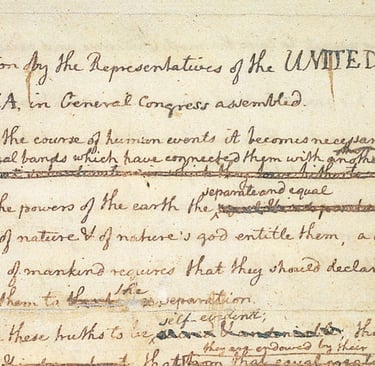 on by the Representatives of the UNITED
A, in General Congress assembled.
the course of human events it becomes necessar
al bands which have connected them with another
separate and equal
he powers of the earth the
of nature & of nature's god entitle them, a d
of mankind requires that they should declar
the
them to separation.
self-evident;
these truths to be
they are endowed by their
that equal